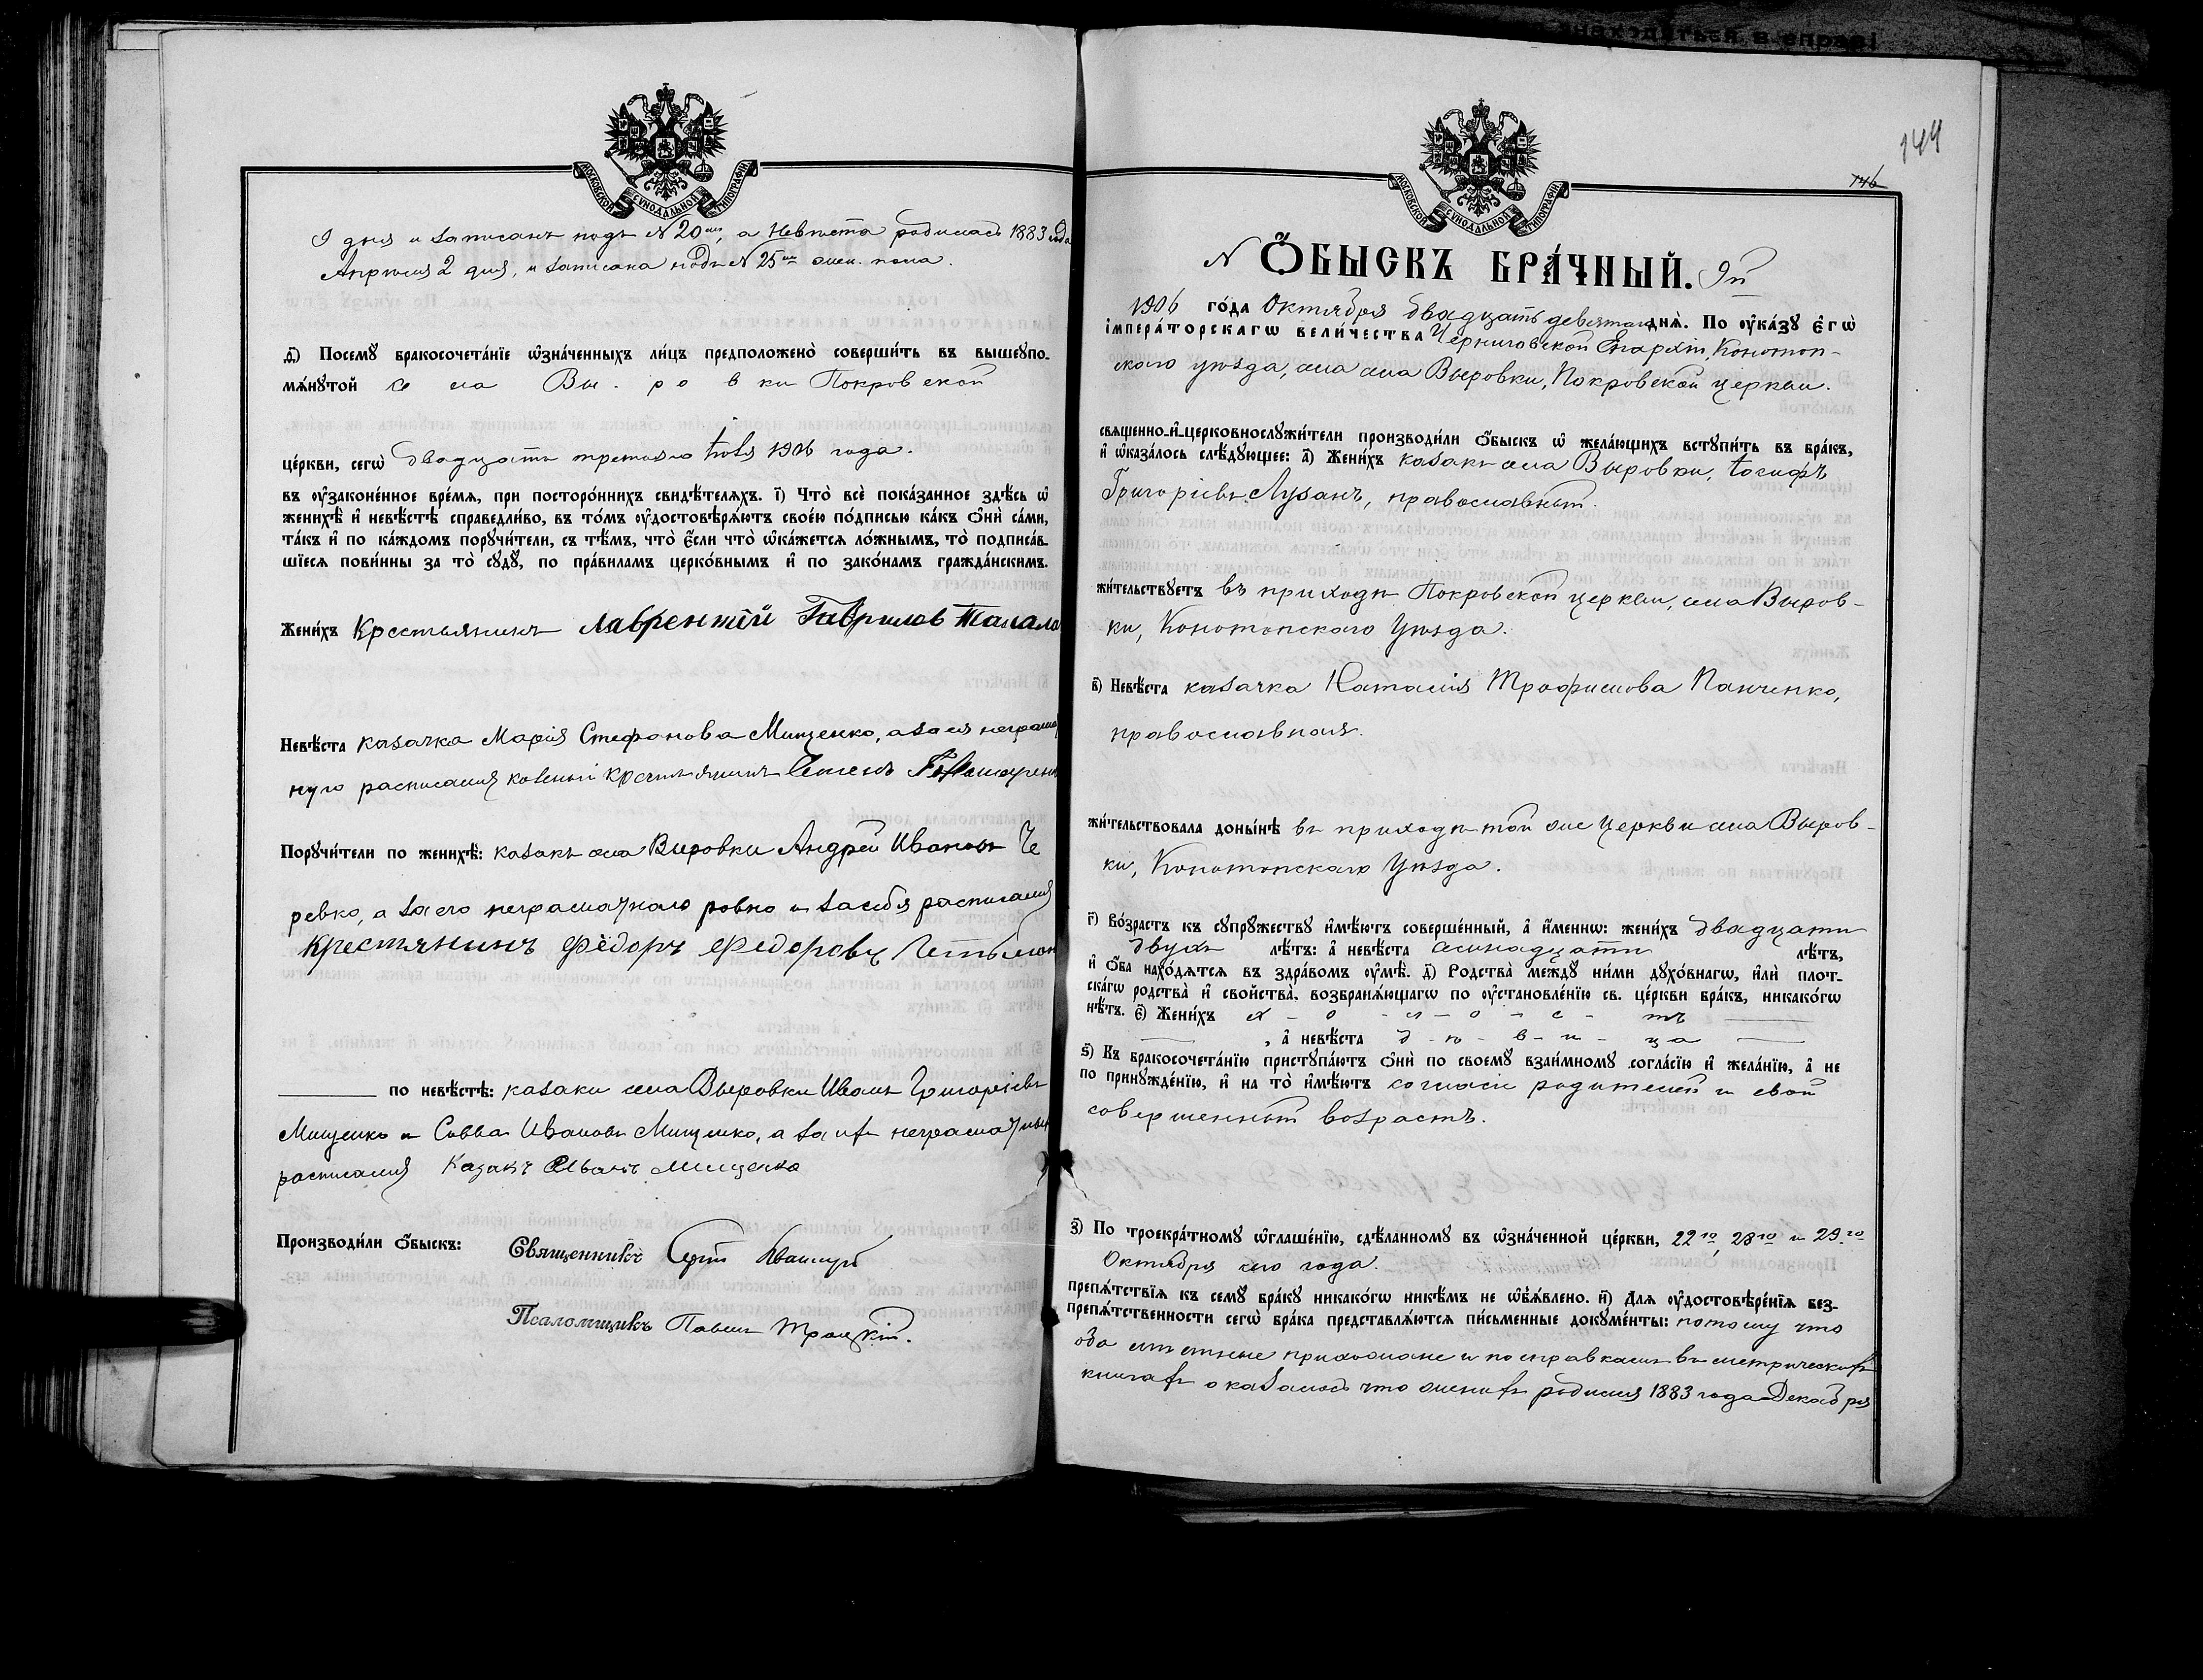 МОСКОВСКОЙ СѴНОДАЛЬНОЙ ТИПОГРАФІИ
дня и записанъ подъ № 20мъ, а невѣста родилась 1883 года
Апрѣля 2 дня, и записана подъ № 25мъ жен. пола.
ѳ҃) Посемꙋ бракосочета́нїе ѡ҆зна́ченныхъ ли́цъ предположено̀ соверши́ть въ вышеꙋпо-
мѧ́нꙋтой села Выровки Покровской
це́ркви, сегѡ̀ двадцать третьяго Іюля 1906 года.
въ ᲂу҆законе́нное вре́мѧ, при посторо́ннихъ свидѣ́телѧхъ. і҃) Что̀ всѐ пока́занное здѣ́сь ѡ҆
женихѣ̀ и҆ невѣ́стѣ справедли́во, въ то́мъ ᲂу҆достовѣрѧ́ютъ свое́ю по́дписью ка́къ ѻ҆нѝ са́ми,
та́къ и҆ по ка́ждомъ порꙋчи́тели, съ тѣ́мъ, что̀ є҆́сли что̀ ѡ҆ка́жется ло́жнымъ, то̀ подписа́в-
шїесѧ пови́нны за то̀ сꙋдꙋ̀, по пра́виламъ церко́внымъ и҆ по зако́намъ гражда́нскимъ.
Жени́хъ Крестьянинъ Лаврентій Гаврилов Талала
Невѣ́ста казачка Марія Стефанова Мищенко, а за ея неграмот
ную расписался крестьянинъ Семенъ
Порꙋчи́тели по женихѣ̀: казакъ села Выровки Андрей Ивановъ Че
ревко, а за его неграмотнаго ровно и за себя расписался
Крестянинъ Фёдоръ Федоровъ Гетьман
по невѣ́стѣ: казаки села Выровки Иванъ Григорьевъ
Мищенко и Савва Ивановъ Мищенко, а за ихъ неграмотныхъ
расписался Казакъ Иванъ Мищенко
Производи́ли ѻ҆́быскъ: Священникъ Сергій
Псаломщикъ Павелъ Троицкій.
144
146
МОСКОВСКОЙ СѴНОДАЛЬНОЙ ТИПОГРАФІИ
№ Ѻ҆БЫСКЪ БРА́ЧНЫЙ. 9й
1906 го́да Октября двадцать девятаго днѧ̀. По ᲂу҆ка́зꙋ є҆гѡ̀
і҆мпера́торскагѡ вели́чества Черниговской Епархіи, Конотоп-
скаго уѣзда, села Выровки, Покровской церкви.
свѧщенно-и҆-церковнослꙋжи́тели производи́ли ѻ҆́быскъ ѡ҆ жела́ющихъ встꙋпи́ть въ бра́къ,
и҆ ѡ҆каза́лось слѣ́дꙋющее: а҃) Жени́хъ казакъ села Выровки, Іосифъ
Григоріевъ Лузанъ, православный.
жи́тельствꙋетъ въ приходѣ Покровской церкви, села Выров-
ки, Конотопскаго Уѣзда.
в҃) Невѣ́ста казачка Наталія Трофимова Панченко,
православная.
жи́тельствовала доны́нѣ въ приходѣ той же церкви села Выров-
ки, Конотопскаго Уѣзда.
г҃) Во́зрастъ къ сꙋпрꙋ́жествꙋ и҆мѣ́ютъ соверше́нный, а҆ и҆́меннѡ: жени́хъ двадцати
двухъ лѣ́тъ: а҆ невѣ́ста лѣ́тъ,
и҆ ѻ҆́ба нахо́дѧтсѧ въ здра́вомъ ᲂу҆мѣ̀. д҃) Родства̀ междꙋ̀ ни́ми дꙋхо́внагѡ, и҆лѝ плот-
ска́гѡ родства̀ и҆ сво́йства̀, возбранѧ́ющагѡ по ᲂу҆становле́нїю св. це́ркви бра́къ, никако́гѡ
нѣ́тъ. є҃) Жени́хъ х-о-л-о-с-тъ
, а҆ невѣ́ста д-ѣ-в-и-ца
ѕ҃) Къ бракосочета́нїю пристꙋпа́ютъ ѻ҆нѝ по своемꙋ̀ взаи́мномꙋ согла́сїю и҆ жела́нїю, а҆ не
по принꙋжде́нїю, и҆ на то̀ и҆мѣ́ютъ согласіе родителей и свой
совершенный возрастъ.
з҃) По троекра́тномꙋ ѡ҆глаше́нїю, сдѣ́ланномꙋ въ ѡ҆зна́ченной це́ркви, 22го, 28го и 29го
Октября сего года.
препѧ́тствїѧ къ семꙋ̀ бра́кꙋ никако́гѡ никѣ́мъ не ѡ҆б̾ѧ́влено. и҃) Длѧ ᲂу҆достовѣре́нїѧ без-
препѧ́тственности сегѡ̀ бра́ка представлѧ́ютсѧ пи́сьменные докꙋме́нты: потому что
оба мѣстные прихожане и по справкамъ въ метрическихъ
книгахъ оказалось что женихъ родился 1883 года Декабря